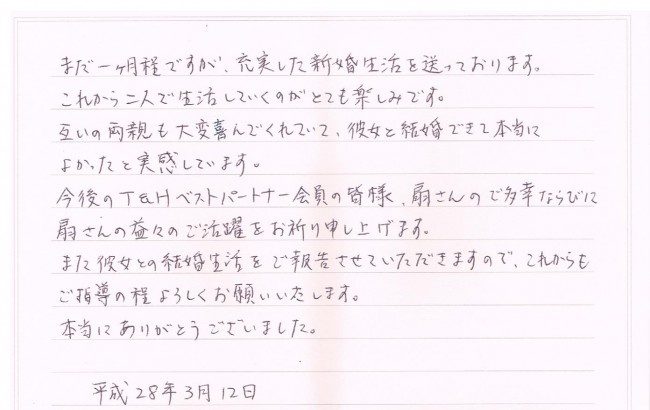 まだ一ヶ月程ですが、充実した新婚生活を送っております。
これから二人で生活していくのがとても楽しみです。
互いの両親も大変喜んでくれていて、彼女と結婚できて本当に
よかったと実感しています。
今後のT&Hベストパートナー会員の皆様、扇さんのご多幸ならびに
扇さんの益々のご活躍をお祈り申し上げます。
また彼女との結婚生活をご報告させていただきますので、これからも
ご指導の程よろしくお願いいたします。
本当にありがとうございました。
平成28年3月12日